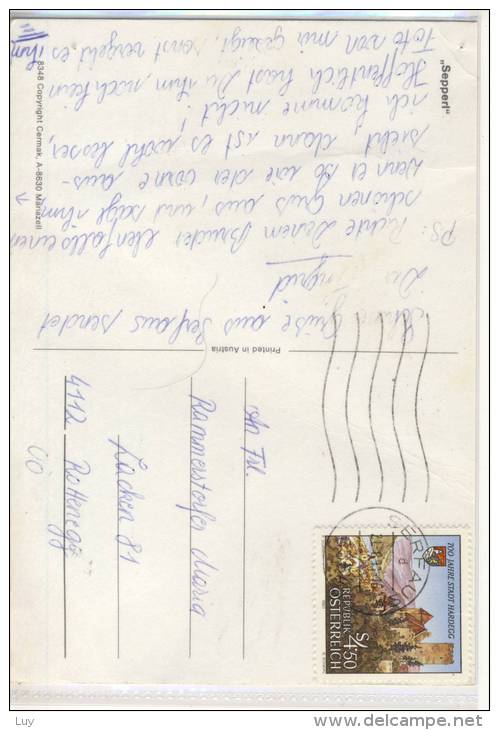 „Sepperl"
Schöne Grüße aus Serfaus sendet
Dir Ingrid
PS: Richte Deinem Bruder ebenfalls einen
schönen Gruß aus, und sag ihm,
wenn er so wie der vorne aus-
sieht, dann ist es wohl besser,
ich komme nicht!
Hoffentlich hast Du ihm noch kein
Foto von mir gezeigt, sonst vergeht es
ihm
8348 Copyright Cermak, A-8630 Mariazell
Printed in Austria
An Frl.
Rammerstorfer Maria
Lacken 81
4112 Rottenegg
OÖ
SERFAU
700 JAHRE STADT HARDEGG
S 4,50
REPUBLIK
ÖSTERREICH
Luy
http://www.delcampe.net